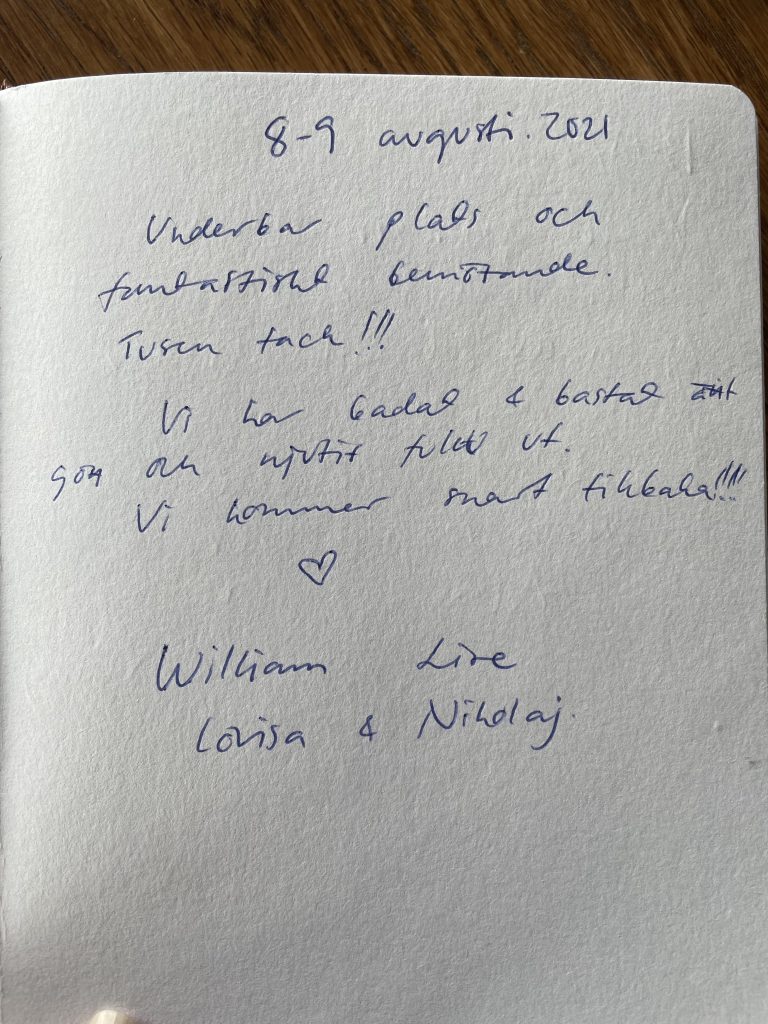 8-9 augusti. 2021
Underbar plats och
fantastiskt bemötande.
Tusen tack!!!
Vi har badat & bastat
gott och njutit fullt ut.
Vi kommer snart tillbaka!!!
♡
William Live
Lovisa & Nikolaj.